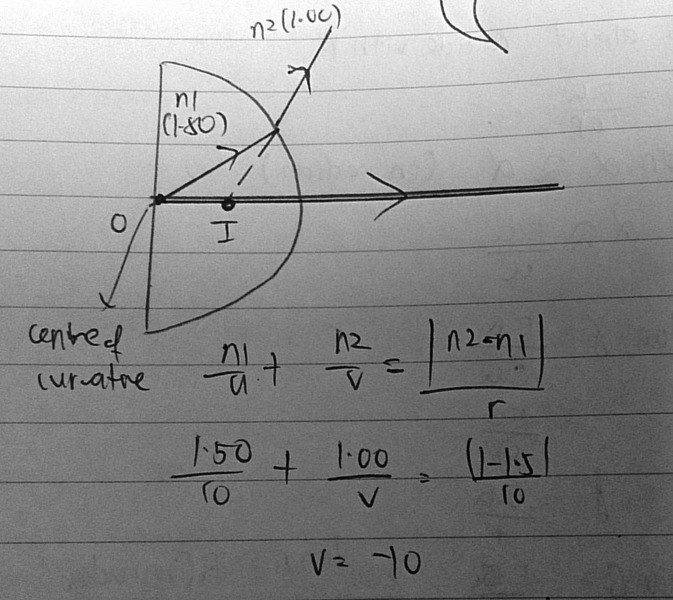 n2 (1.00)
n1
(1.50)
O
I
centre of
curvature
n1/u + n2/v = |n2-n1|/r
1.50/10 + 1.00/v = |1-1.5|/10
v = -10